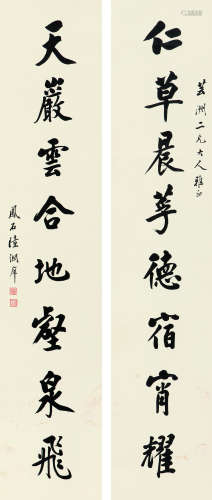 芸洲二兄大人雅正
仁草晨荂德宿宵耀
天巖雲合地壑泉飛
鳳石陸潤庠